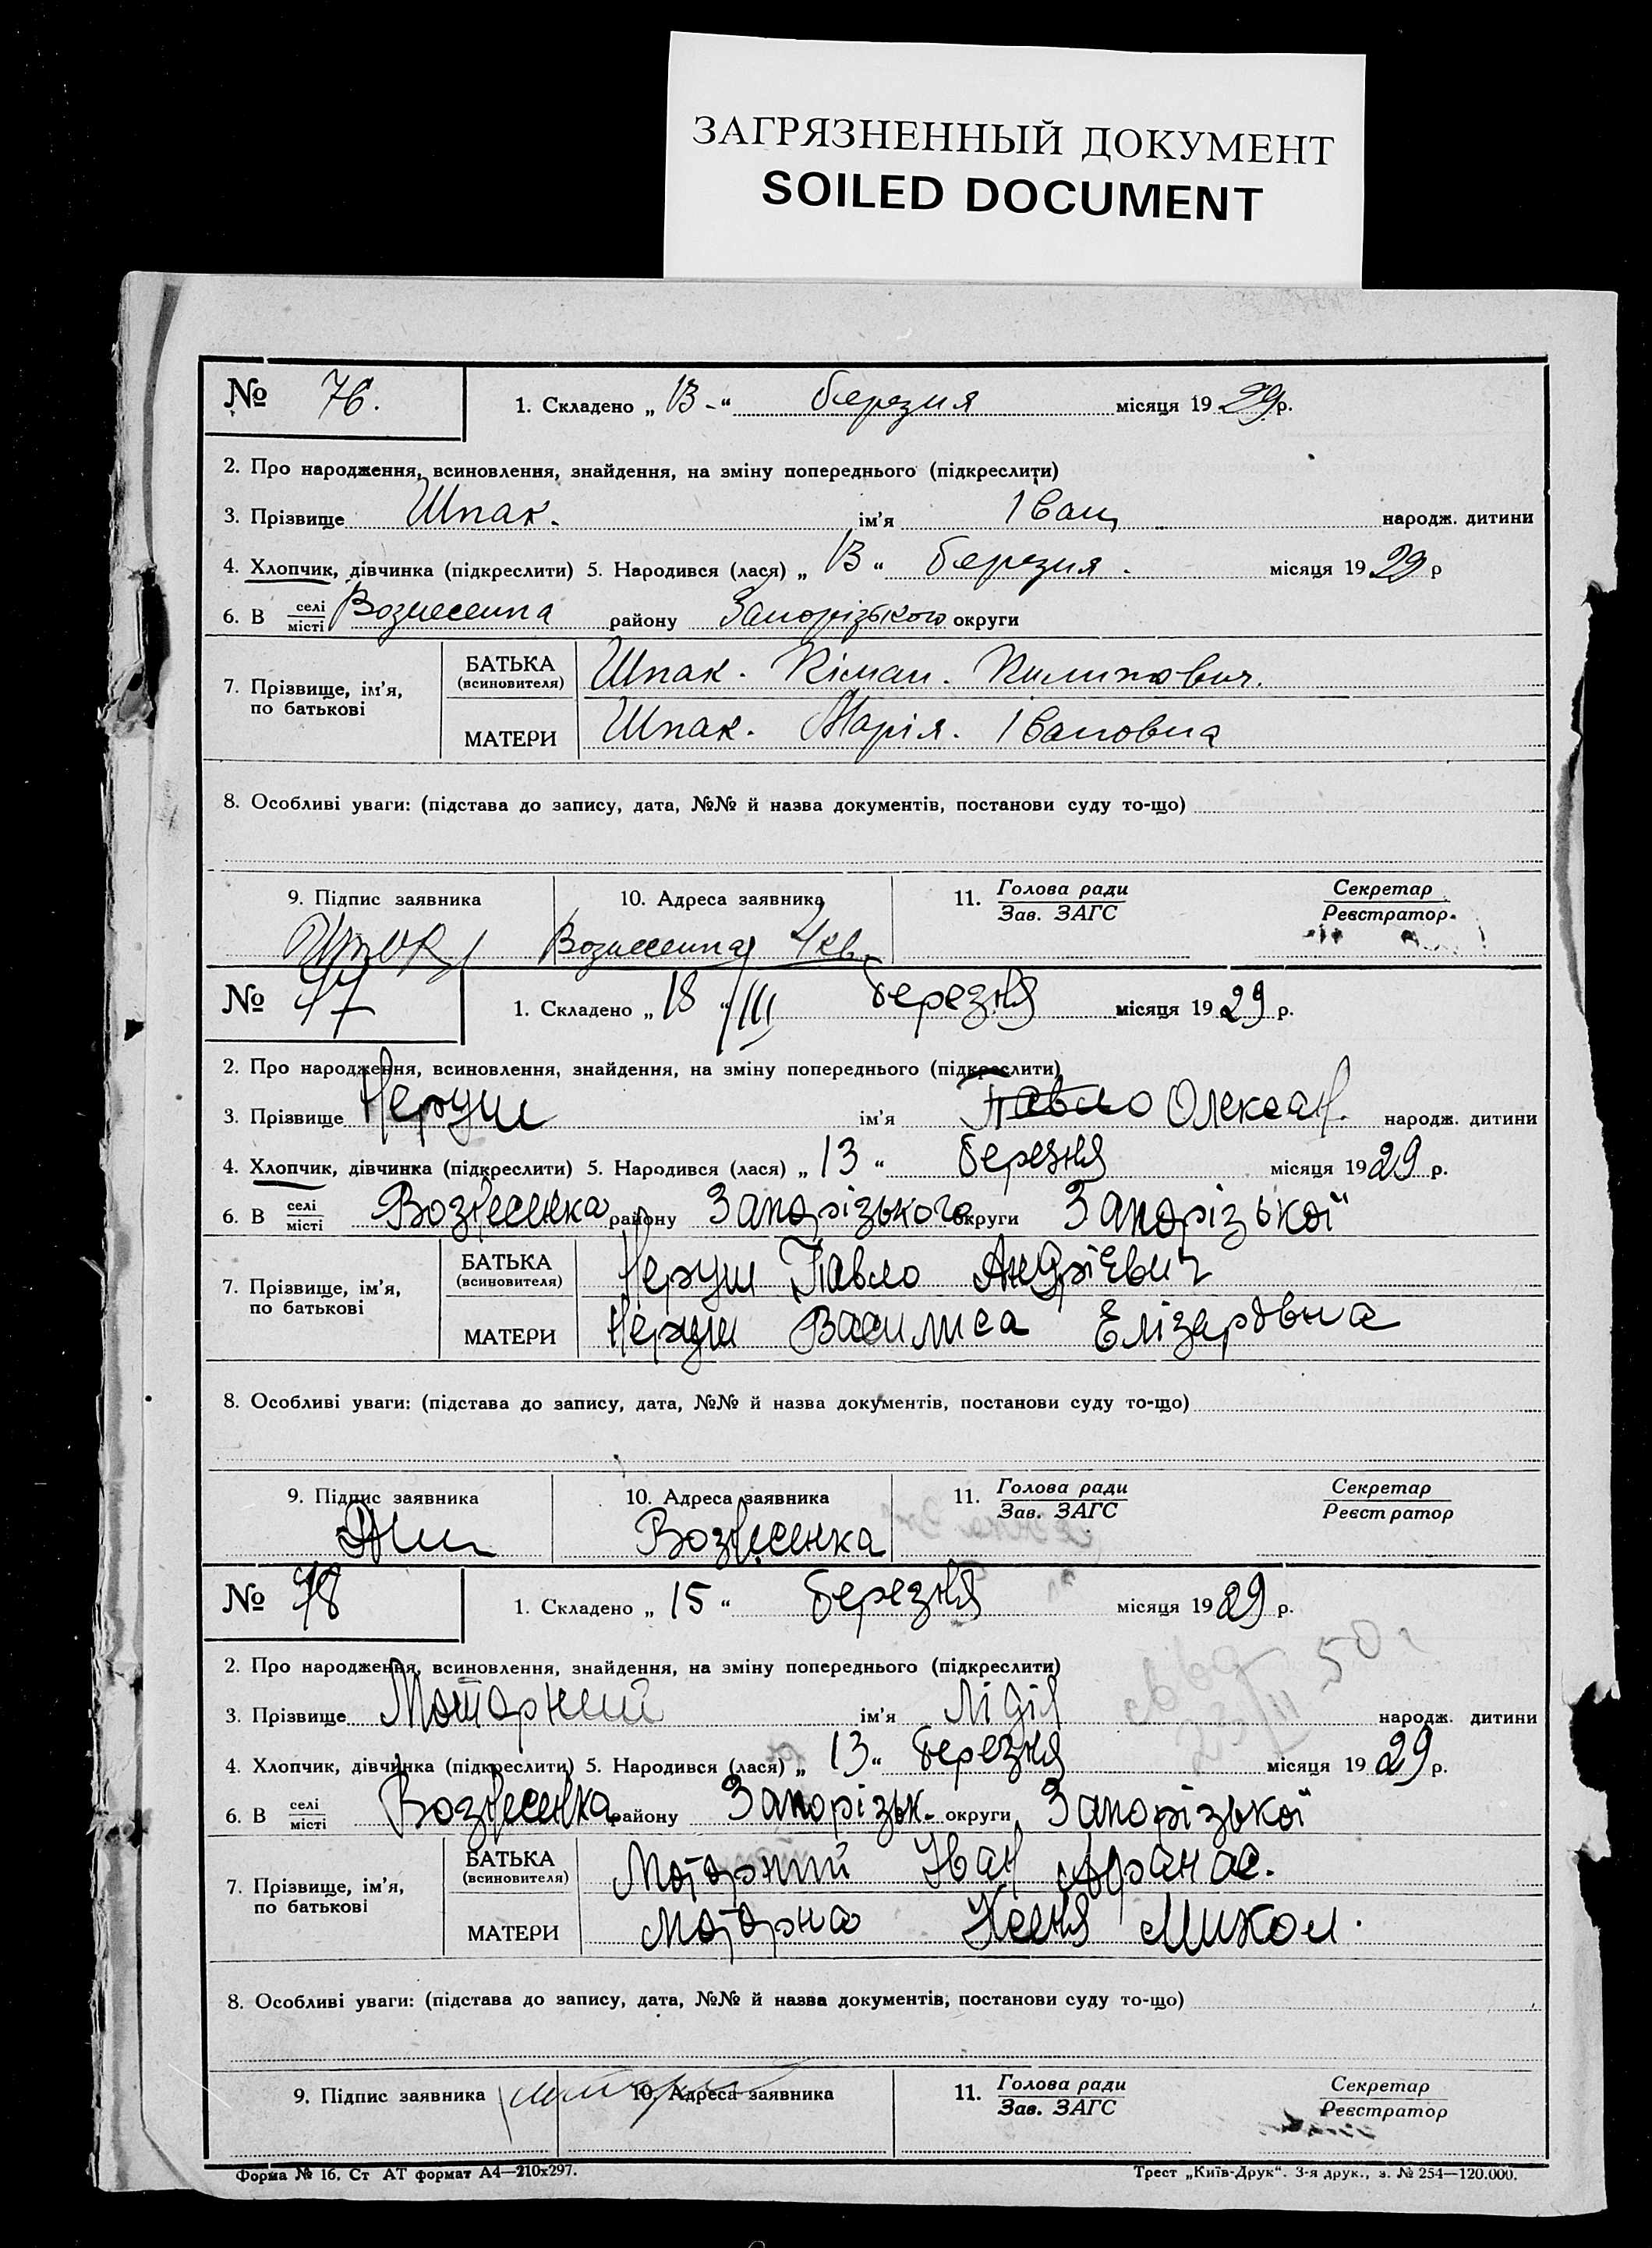 ЗАГРЯЗНЕННЫЙ ДОКУМЕНТ
SOILED DOCUMENT
№ 76. 1. Складено „ 13 - “ березня місяця 19 29 р.
2. Про народження, всиновлення, знайдення, на зміну попереднього (підкреслити)
3. Прізвище Шпак. ім’я Іван народж. дитини
4. Хлопчик, дівчинка (підкреслити) 5. Народився (лася) „ 13 “ березня. місяця 19 29 р
6. В селі місті Вознесенка району Запорізького округи
7. Прізвище, ім’я, по батькові БАТЬКА (всиновителя) Шпак. Пилипович.
МАТЕРИ Шпак. Марія. Івановна
8. Особливі уваги: (підстава до запису, дата, №№ й назва документів, постанови суду то-що)
9. Підпис заявника 10. Адреса заявника 11. Голова ради Зав. ЗАГС Секретар Реєстратор
Вознесенка 4 кв.
№ 77 1. Складено „ 18 “ /III березня місяця 19 29 р.
2. Про народження, всиновлення, знайдення, на зміну попереднього (підкреслити)
3. Прізвище Неруш ім’я Павло Олексан. народж. дитини
4. Хлопчик, дівчинка (підкреслити) 5. Народився (лася) „ 13 “ березня місяця 19 29 р.
6. В селі місті Вознесенка району Запорізького округи Запорізької
7. Прізвище, ім’я, по батькові БАТЬКА (всиновителя) Неруш Павло Андрієвич
МАТЕРИ Неруш Василиса Єлізаровна
8. Особливі уваги: (підстава до запису, дата, №№ й назва документів, постанови суду то-що)
9. Підпис заявника 10. Адреса заявника 11. Голова ради Зав. ЗАГС Секретар Реєстратор
Вознесенка
№ 78 1. Складено „ 15 “ березня місяця 19 29 р.
2. Про народження, всиновлення, знайдення, на зміну попереднього (підкреслити)
3. Прізвище Моторний ім’я Лідія народж. дитини
4. Хлопчик, дівчинка (підкреслити) 5. Народився (лася) „ 13 “ березня місяця 19 29 р.
6. В селі місті Вознесенка району Запорізьк. округи Запорізької
7. Прізвище, ім’я, по батькові БАТЬКА (всиновителя) Моторний Іван Афанас.
МАТЕРИ Моторна Ксеня Микол.
8. Особливі уваги: (підстава до запису, дата, №№ й назва документів, постанови суду то-що)
9. Підпис заявника 10. Адреса заявника 11. Голова ради Зав. ЗАГС Секретар Реєстратор
Форма № 16. Ст АТ формат А4—210х297. Трест „Київ-Друк“. 3-я друк., з. № 254—120.000.